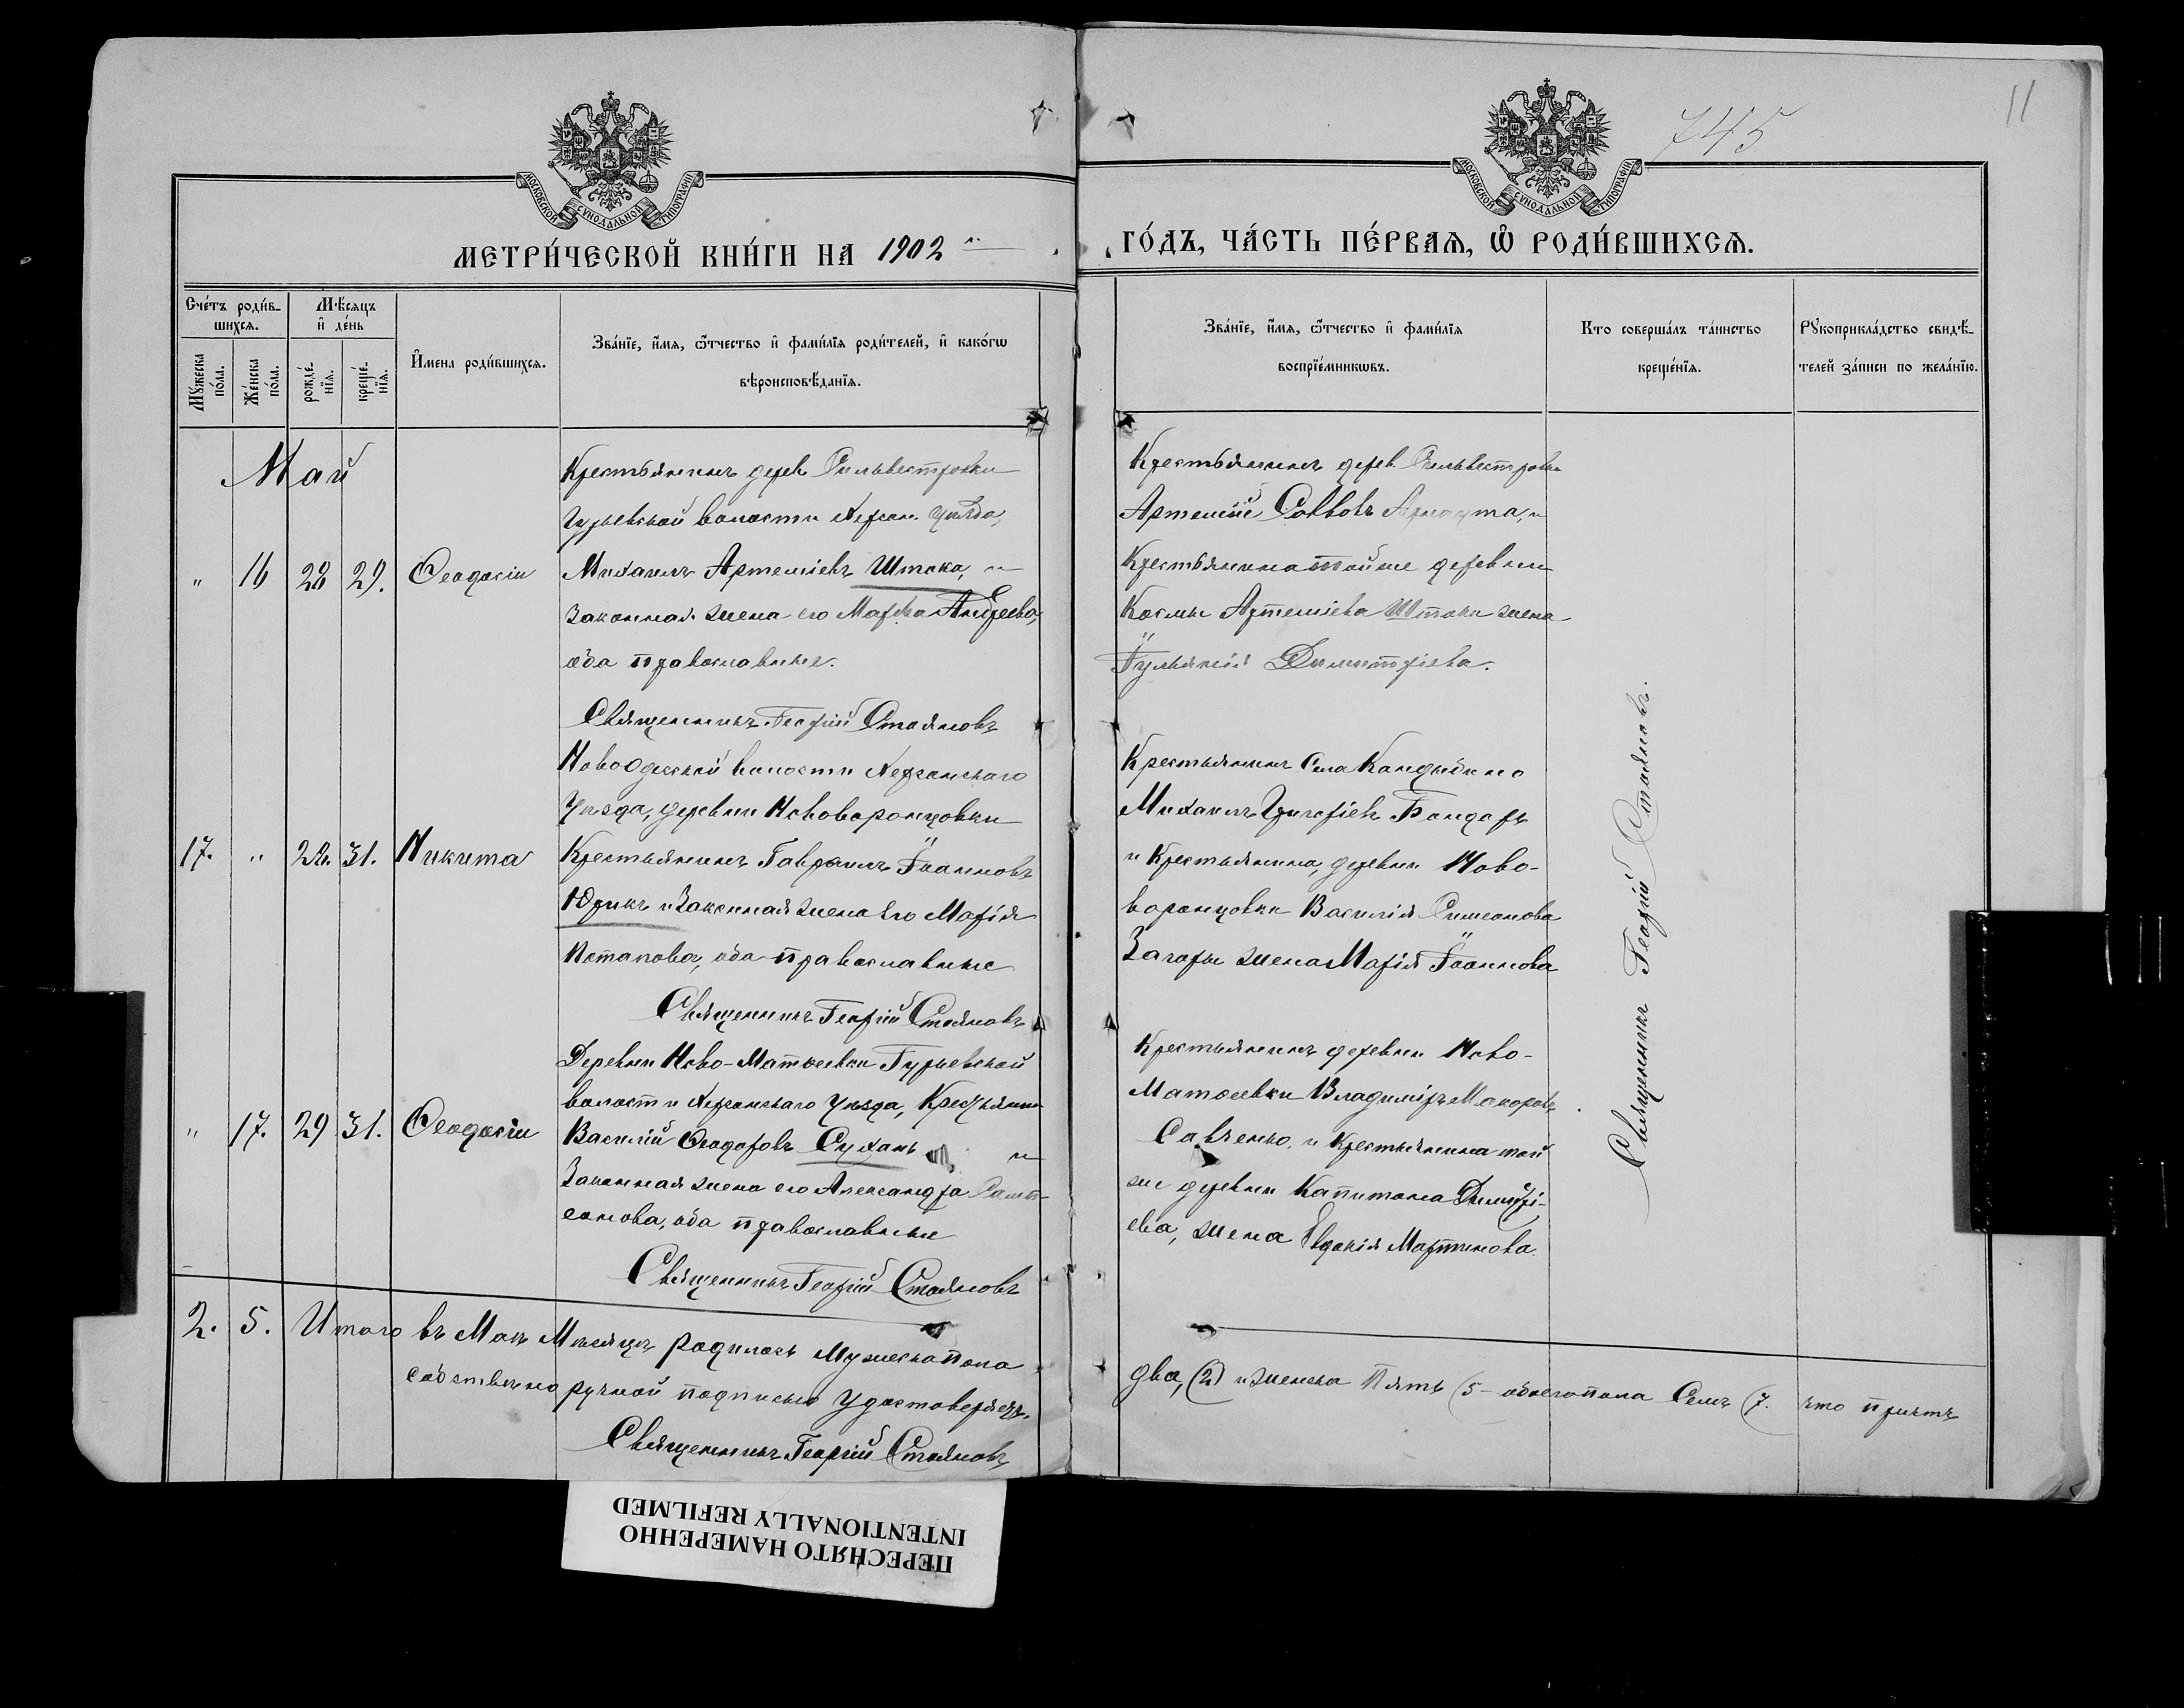 745
11
МОСКОВСКОЙ СУНОДАЛЬНОЙ ТИПОГРАФІИ
МОСКОВСКОЙ СУНОДАЛЬНОЙ ТИПОГРАФІИ
МЕТРИ́ЧЕСКОЙ КНИ́ГИ НА 1902
ГО́ДЪ, ЧА́СТЬ ПЕ́РВАѦ, Ѡ҆ РОДИ́ВШИХСѦ.
Сче́тъ роди́в-
шихсѧ.
Мꙋ́жеска по́ла.
Же́нска по́ла.
Мѣ́сяцъ
и҆ де́нь
рожде́-
нїѧ.
креще́-
нїѧ.
И҆мена роди́вшихсѧ.
Зва́нїе, и҆́мѧ, ѻ҆́тчество и҆ фами́лїѧ роди́телей, и҆ како́гѡ
вѣроисповѣ́данїѧ.
Зва́нїе, и҆́мѧ, ѻ҆́тчество и҆ фами́лїѧ
воспрїе́мникѡвъ.
Кто соверша́лъ та́инство
креще́нїѧ.
Рꙋкоприкла́дство свидѣ́-
телей за́писи по жела́нїю.
Май
" 16 28 29. Ѳеодосія
Крестьянинъ дерев Сильвестровки
Гурьевской волости Херсон. уѣзда,
Михаилъ Артеміевъ Штока, и
законная жена его Марѳа Андреева,
оба православные.
Священникъ Георгій Стояновъ
Крестьянинъ дерев. Сильвестровки
Артемій Савовъ и
Крестьянина той же деревни
Космы Артеміева Штоки жена
Іуліанія Димитріева.
17. " 22. 31. Никита
Новоодесской волости Херсонскаго
Уѣзда, деревни Нововоронцовки
Крестьянинъ Гавріилъ Іоанновъ
Юрикъ и законная жена его Марія
Потапова, оба православные
Священникъ Георгій Стояновъ
Крестьянинъ села Кандыбино
Михаилъ Григорьевъ Бондарь
и Крестьянина, деревни Ново-
воронцовки Василія Симеонова
Загоры жена Марія Іоаннова
" 17. 29 31. Ѳеодосія
Деревни Ново-Матвеевки Гурьевской
волости Херсонскаго уѣзда, Крестьянин
Василій Ѳеодоровъ Сухань и
Законная жена его Александра Самп-
сонова, оба православные
Священникъ Георгій Стояновъ
Крестьянинъ деревни Ново-
Матвеевки Владиміръ Макаровъ
Савченко, и Крестьянина той
же деревни Капитона Димитрі-
ева, жена Евдокія Мартинова
Священникъ Георгій Стояновъ.
2. 5. Итого въ Маѣ Мѣсяцѣ родилось Мужеска пола
два, (2) и женска Пять (5 - обоего пола Семь (7. что причтъ
собственноручной подписью удостоверяетъ.
Священникъ Георгій Стояновъ
ПЕРЕСНЯТО НАМЕРЕННО
INTENTIONALLY REFILMED